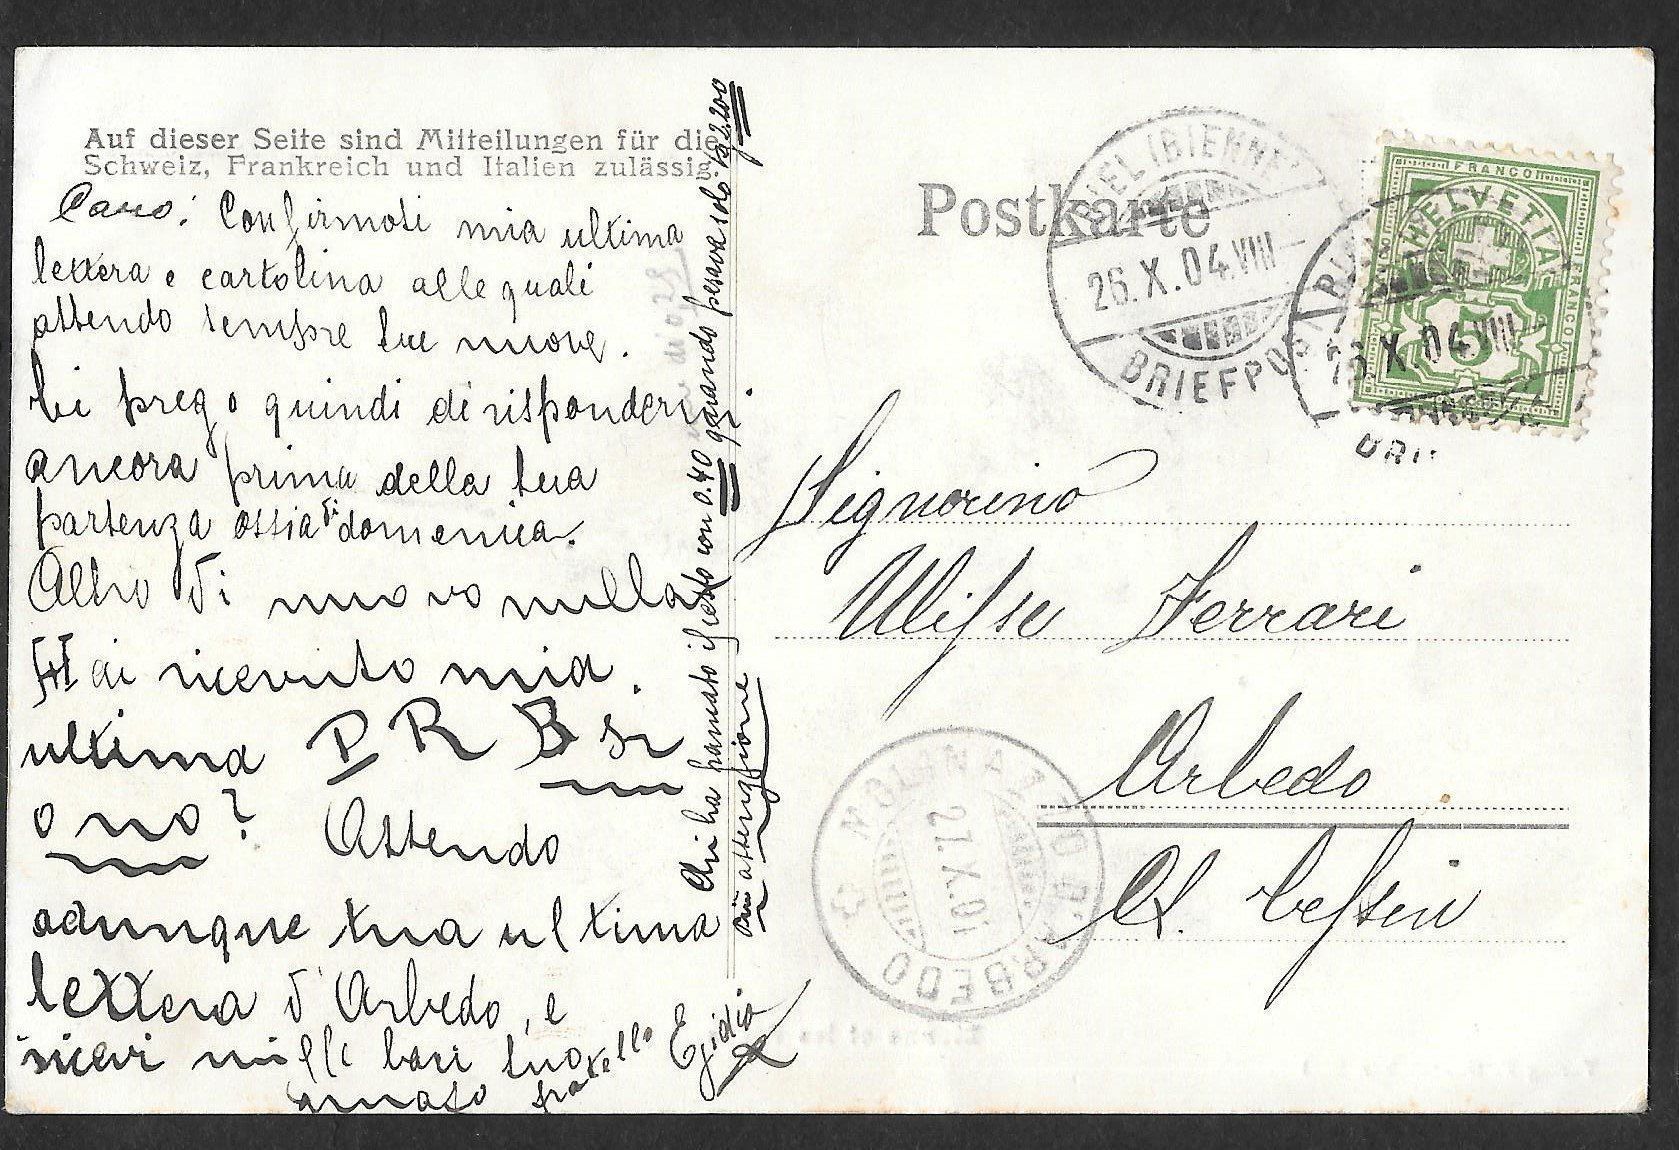 Auf dieser Seite sind Mitteilungen für die
Schweiz, Frankreich und Italien zulässig.
Caro! Confirmoti mia ultima
lettera e cartolina alle quali
attendo sempre tue nuove.
Ti prego quindi di rispondermi
ancora prima della tua
partenza ossia di domenica.
Altro di nuovo nulla
Hai ricevuto mia
ultima P R B si
o no? Attendo
adunque tua ultima
lettera d'Arbedo, e
ricevi mille baci tuo
amato fratello Egidio
con 0.40 pesava solo
più attenzione
Postkarte
BIEL (BIENNE)
26.X.04.VIII
BRIEFPOST
FRANCO
HELVETIA
FRANCO
5
X.04.VIII
Signorino
Ulisse Ferrari
Arbedo
Ct. Tessin
MOLINAZZO D'ARBEDO
27.X.04